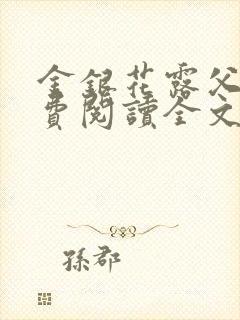 金銀花露父
費閱讀全文
孫郡